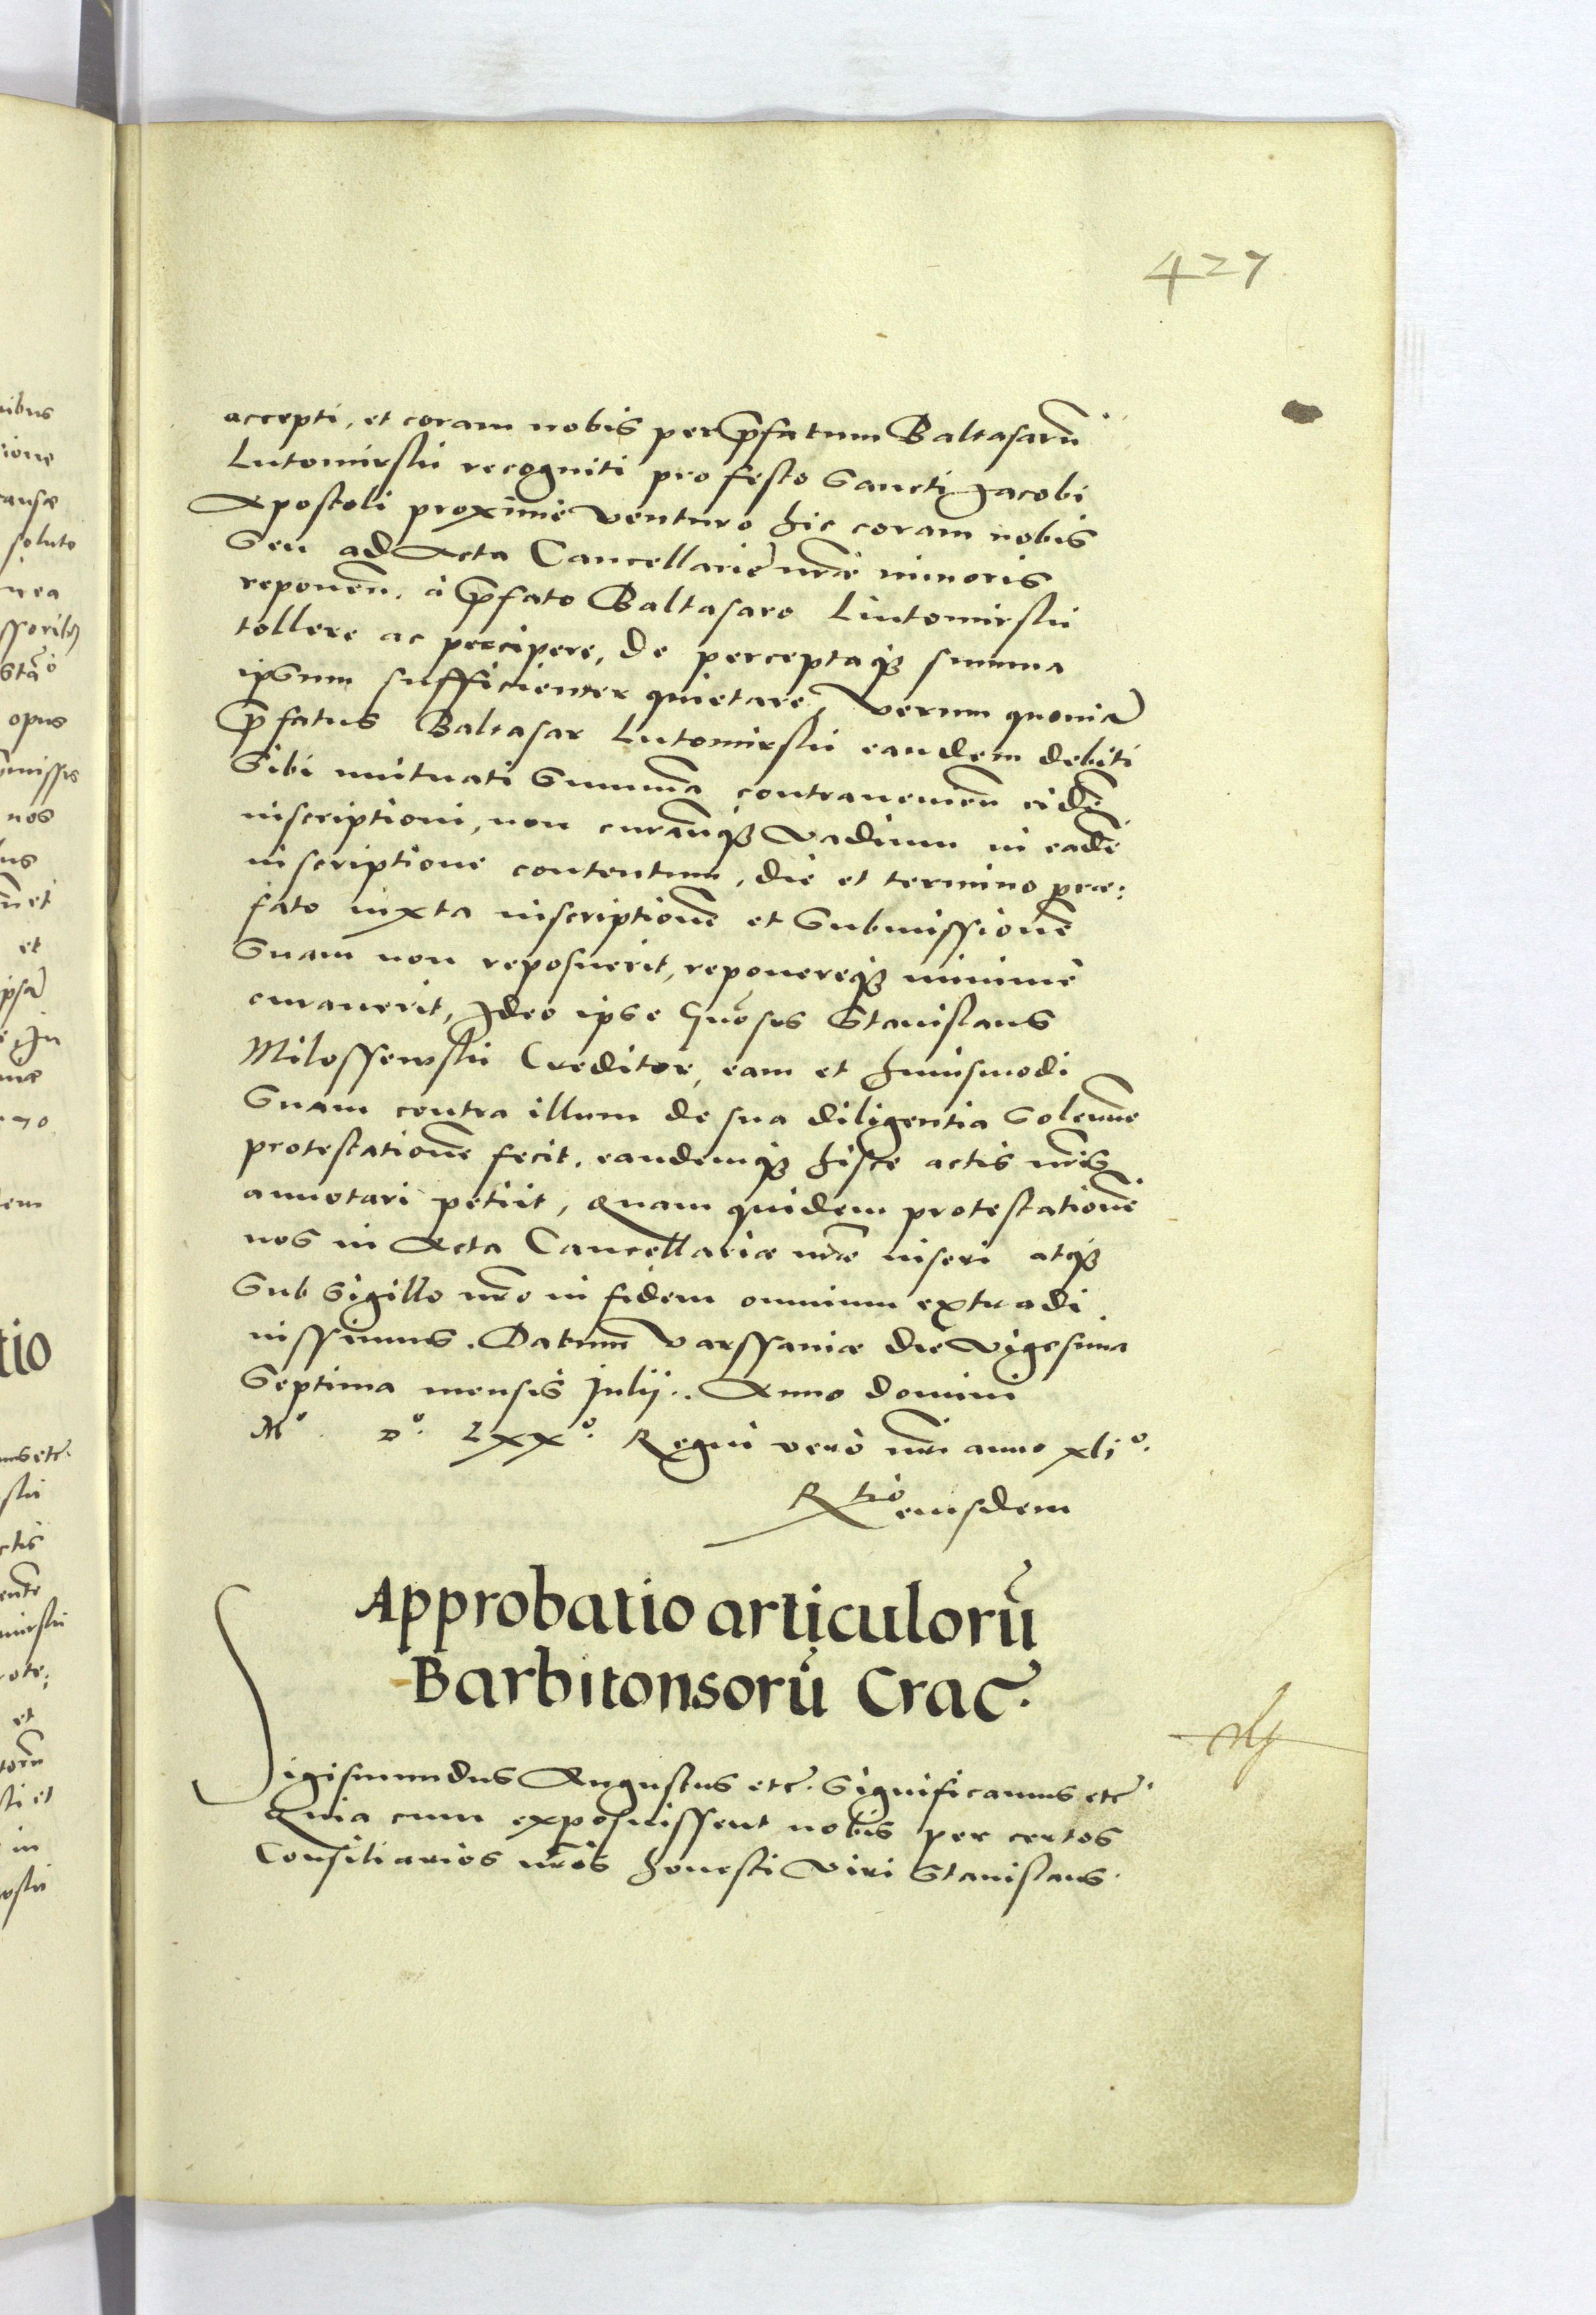 427
accepti, et coram nobis per p̄fatum Baltasarū
Lutomirskii recogniti pro festo Sancti Jacobi
Apostoli proxime venturo hic coram nobis
Seu ad Acta Cancellarie nr̄ae minoris
reponen̄. à p̄fato Baltasaro Liutomirskii
tollere ac percipere, de perceptaq₃ summa
ipsum sufficienter quietare, Verum quoniā
p̄fatus Baltasar Lutomirskii eandem debiti
Sibi mutuati Summā contraueniēn eidē
inscriptioni, non curan̄q₃ Vadium in eadē
inscriptione contentum, die et termino prae:
fato iuxta inscriptionē et Submissionē
Suam non reposuerit, reponereq₃ minime
curauerit, Ideo ipse Gn̄osus Stanislaus
Milossewskii Creditor, eam et huiusmodi
Suam contra illum de sua diligentia Solennē
protestationē fecit. eandemq₃ hisce actis nr̄is
annotari petiit, Quam quidem protestationē
nos in Acta Cancellariae nr̄ae inseri atq₃
Sub Sigillo nr̄o in fidem omnium extradi
iussimus. Datum Varssauiae die Vigesima
Septima mensis Julij. Anno domini
Mº Dº. LXXº. Regni verò nr̄i anno xliº.
Rtio eiusdem
Approbatio articulorū
Barbitonsorū Crac̄.
Sigismundus Augustus etc̄. Significamus etc̄.
Quia cum exposuissent nobis per certos
Consiliarios nr̄os honesti Viri Stanislaus